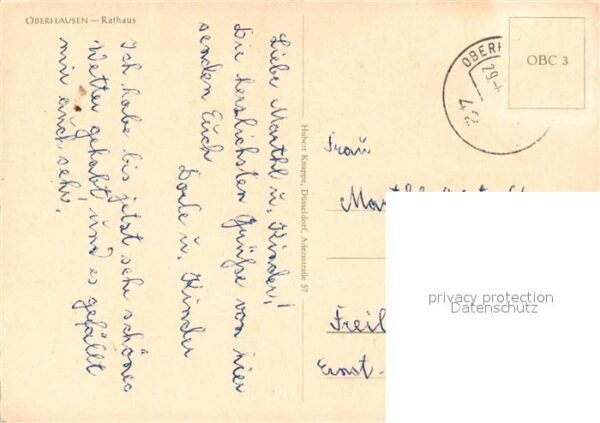 OBERHAUSEN — Rathaus
Liebe Marthl u. Kinder!
Die herzlichsten Grüße von hier
senden Euch
Dorle u. Kinder
Ich habe bis jetzt sehr schönes
Wetter gehabt, und es gefällt
mir auch sehr.
Hubert Knappe, Düsseldorf, Adersstraße 57
OBERH
29.4
OBC 3
Frau
Freil
Ernst-
privacy protection
Datenschutz